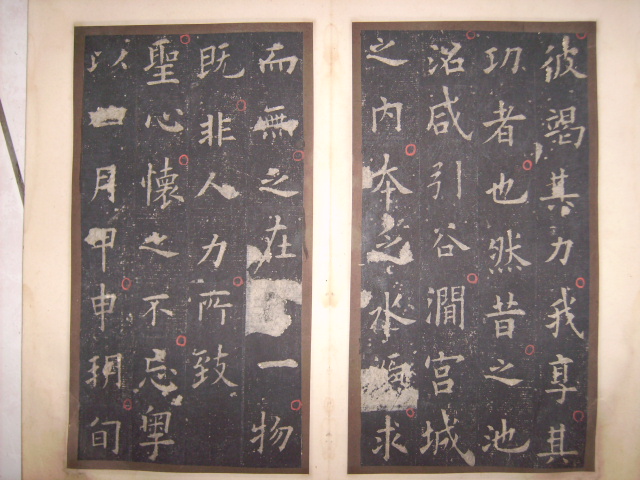 彼竭其力我享其
功者也然昔之池
沼咸引谷澗宮城
之内本乏水源求
而無之在一物
既非人力所致
聖心懷之不忘粵
以月甲申朔旬